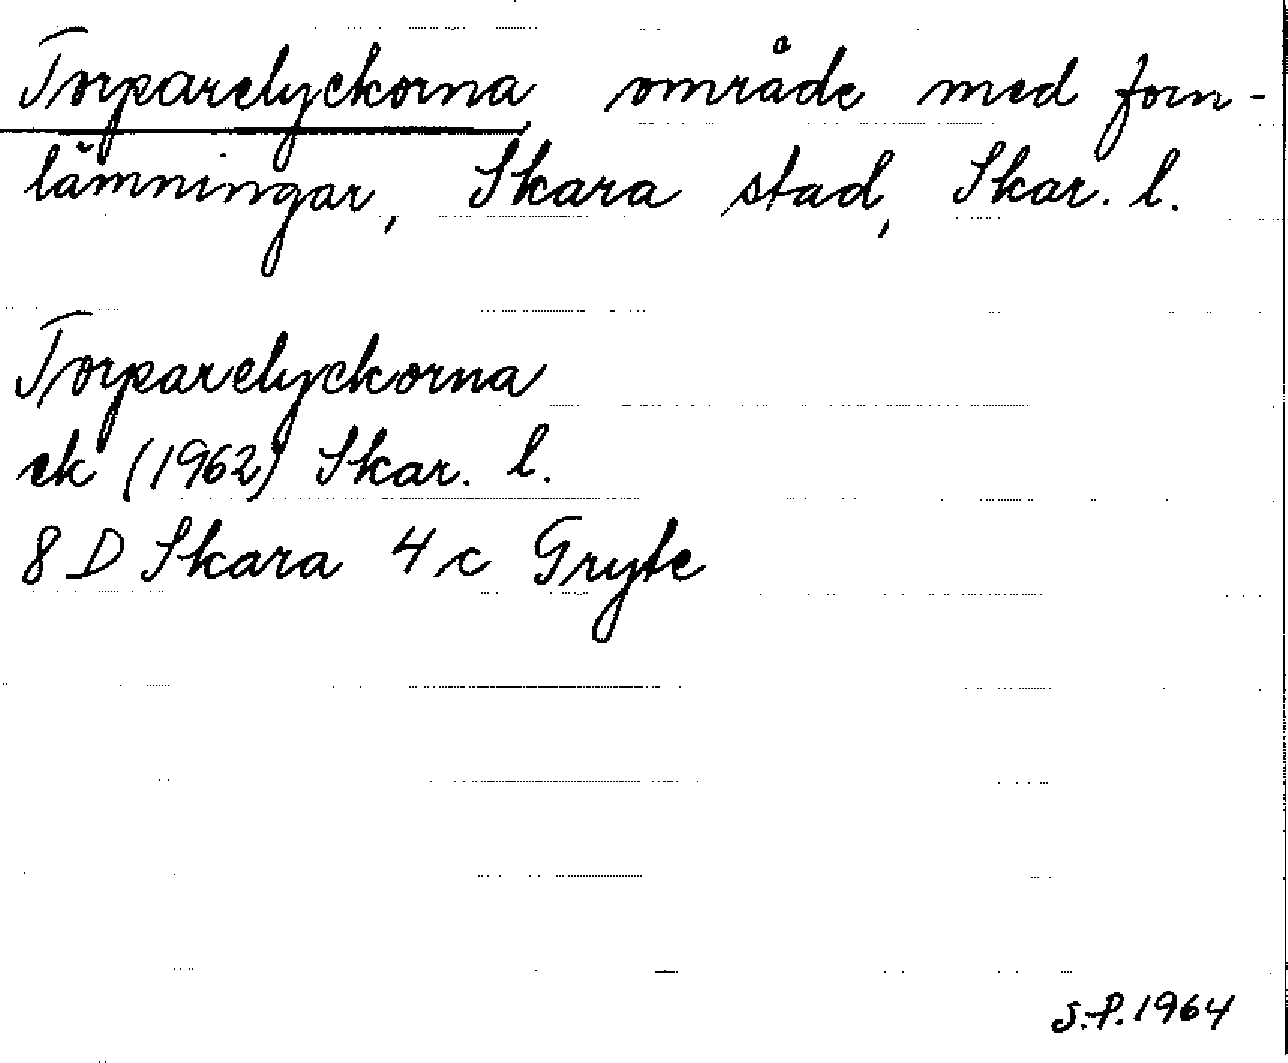 Torparelyckorna område med forn-
lämningar, Skara stad, Skar. l.
Torparelyckorna
ek (1962) Skar. l.
8 D Skara 4 c Gryte
S.P. 1964